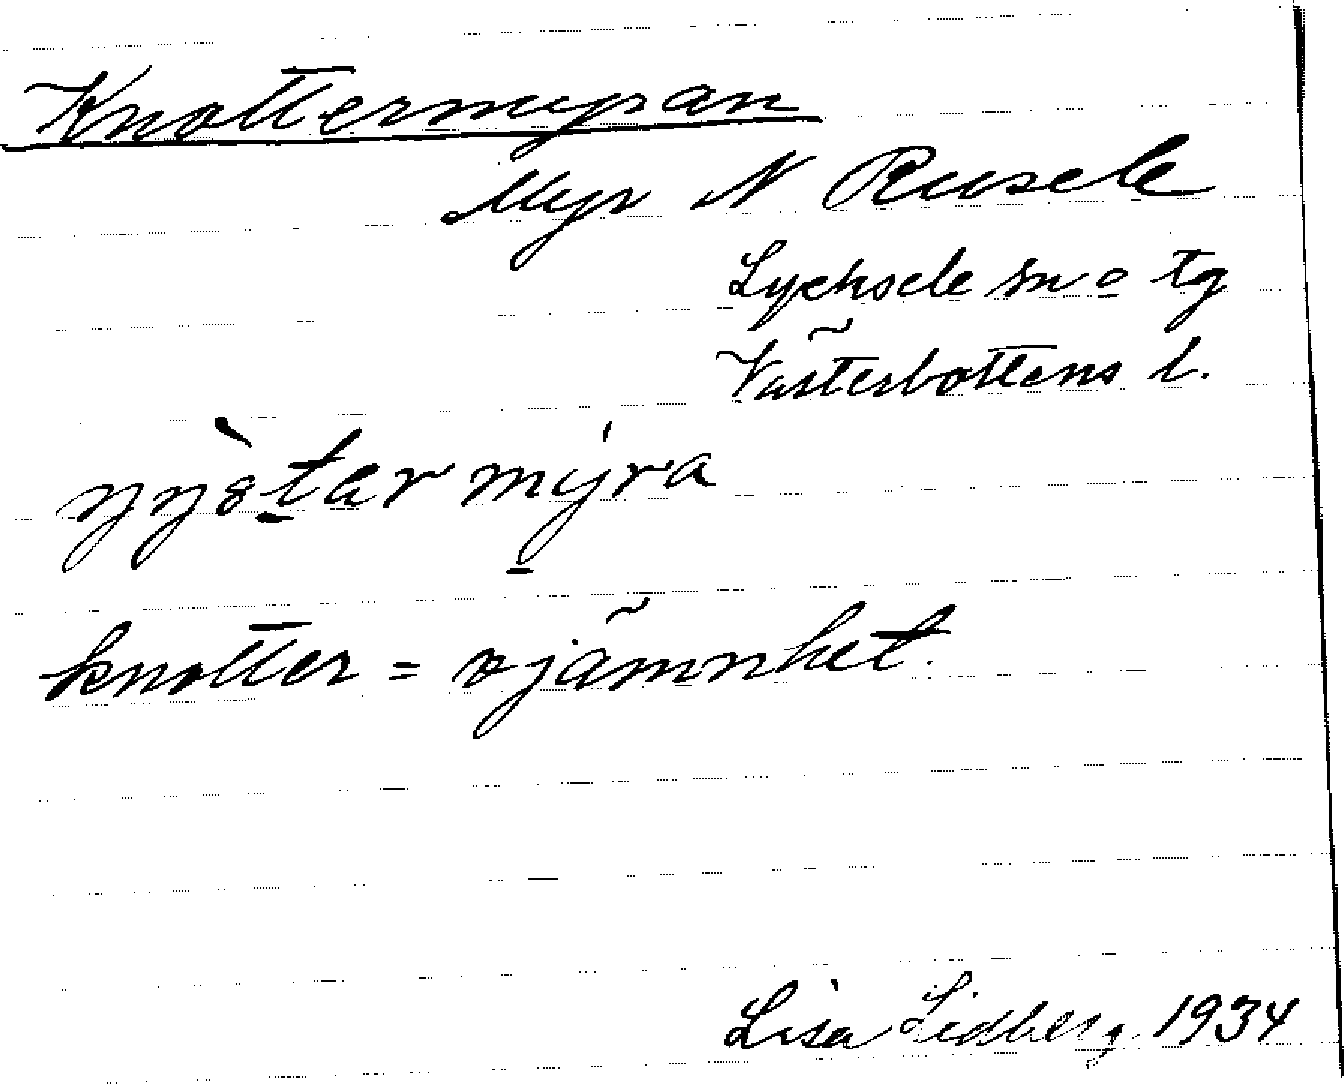 Knottermyran
Myr N Rusele
Lycksele sn o tg
Västerbottens l.
mýra
knotter = ojämnhet.
Lisa Lidberg 1934